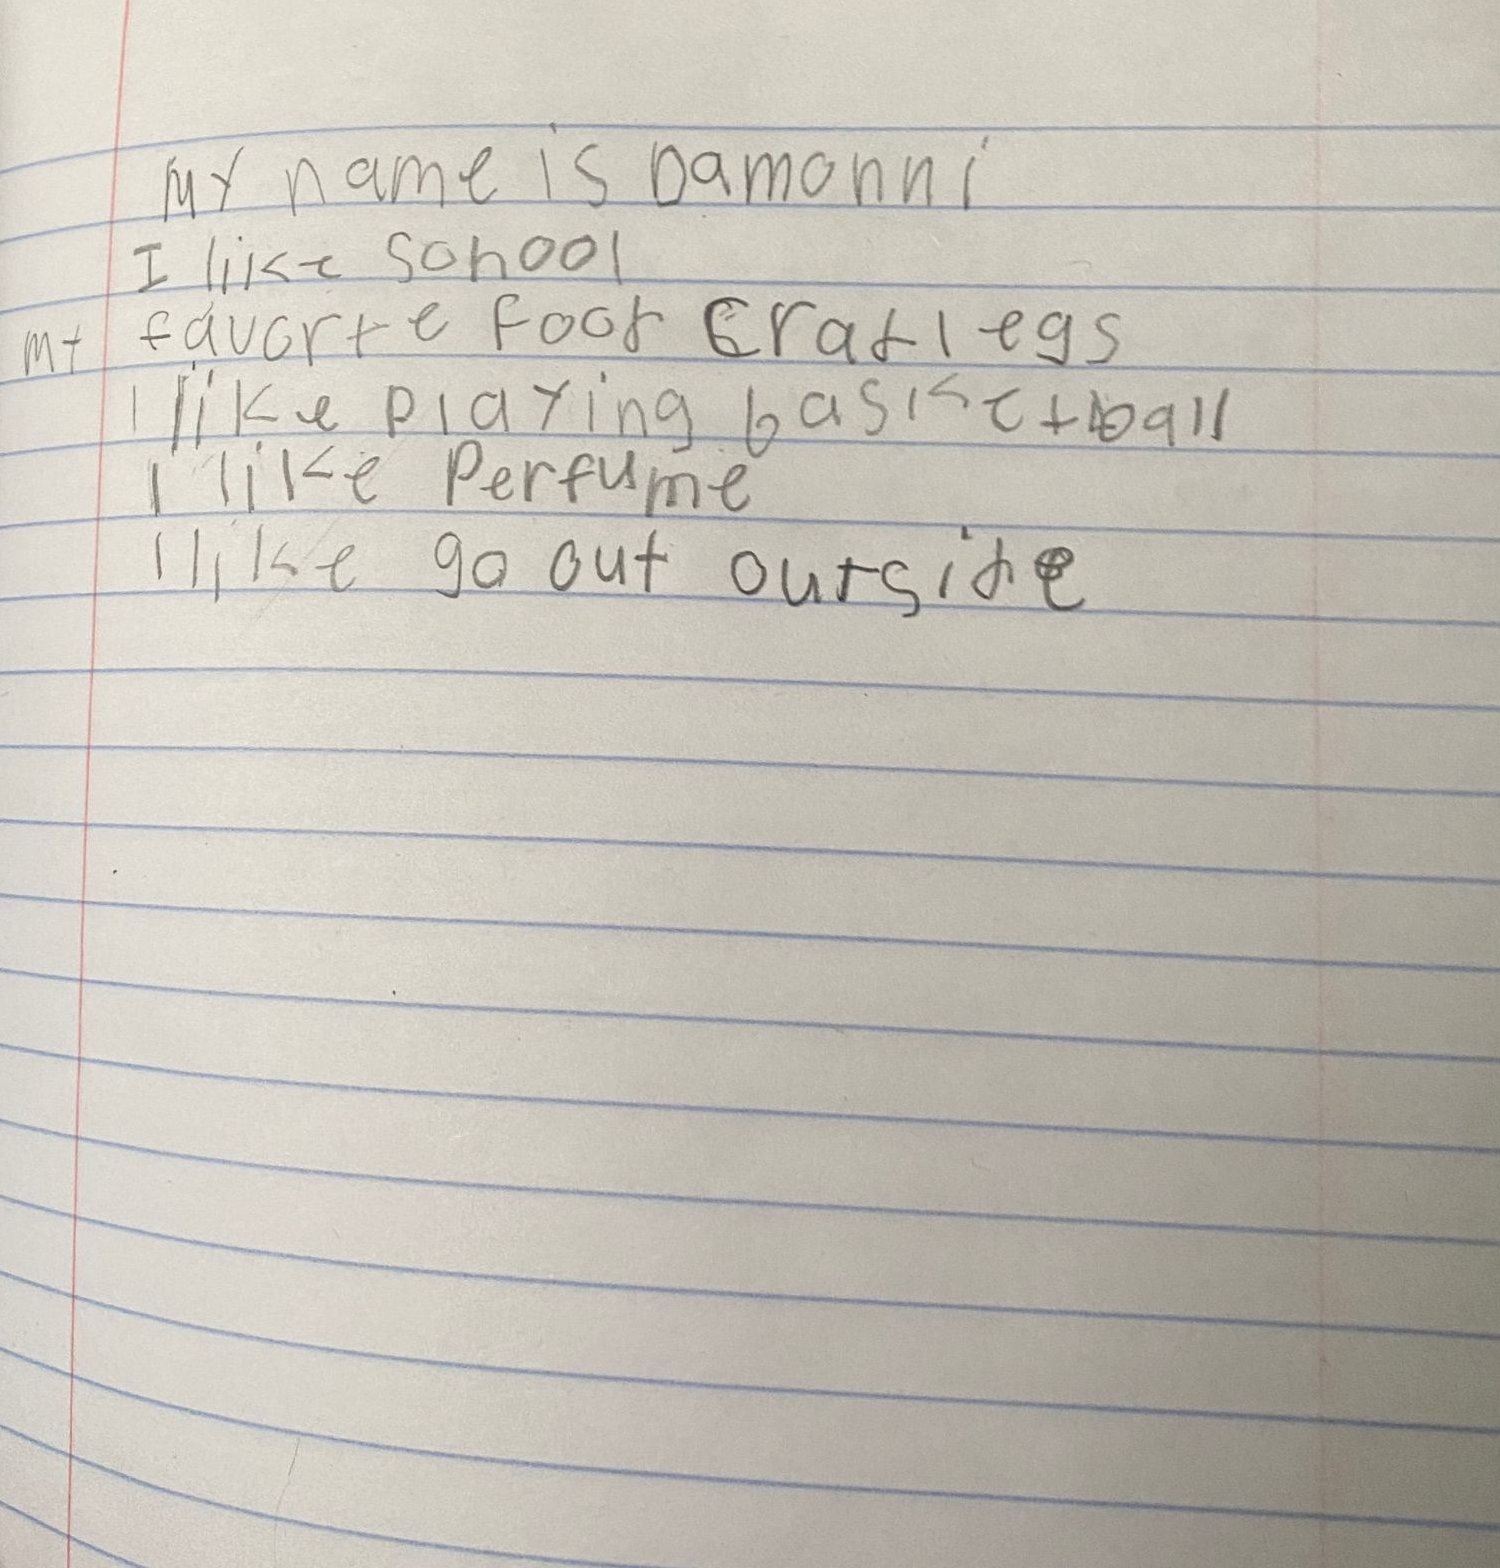 My name is Damonni
I like school
my favorite food Crab legs
I like playing basketball
I like Perfume
I like go out outside